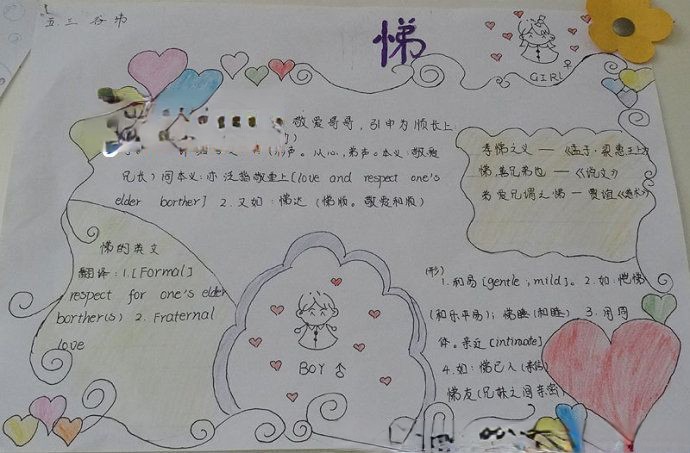 五.三 谷帅
悌
GIRL ♀
敬爱哥哥，引申为顺长上
声。从心，弟声。本义：敬爱
兄长）同本义：亦泛指敬重上[love and respect one's
elder borther] 2.又如：悌达（悌顺。敬爱和顺）
孝悌之义 — 《孟子·梁惠王上》
悌，善兄弟也 — 《说文》
弟爱兄谓之悌 — 贾谊《道术》
悌的英文
翻译：1.[Formal]
respect for one's elder
borther(s) 2. Fraternal
love
BOY ♂
(形)
1.和易[gentle；mild]。2.如：恺悌
(和乐平易)；悌睦（和睦） 3.用同
体。亲近[intimate]
4.如：悌己人
悌友(兄妹之间亲密)